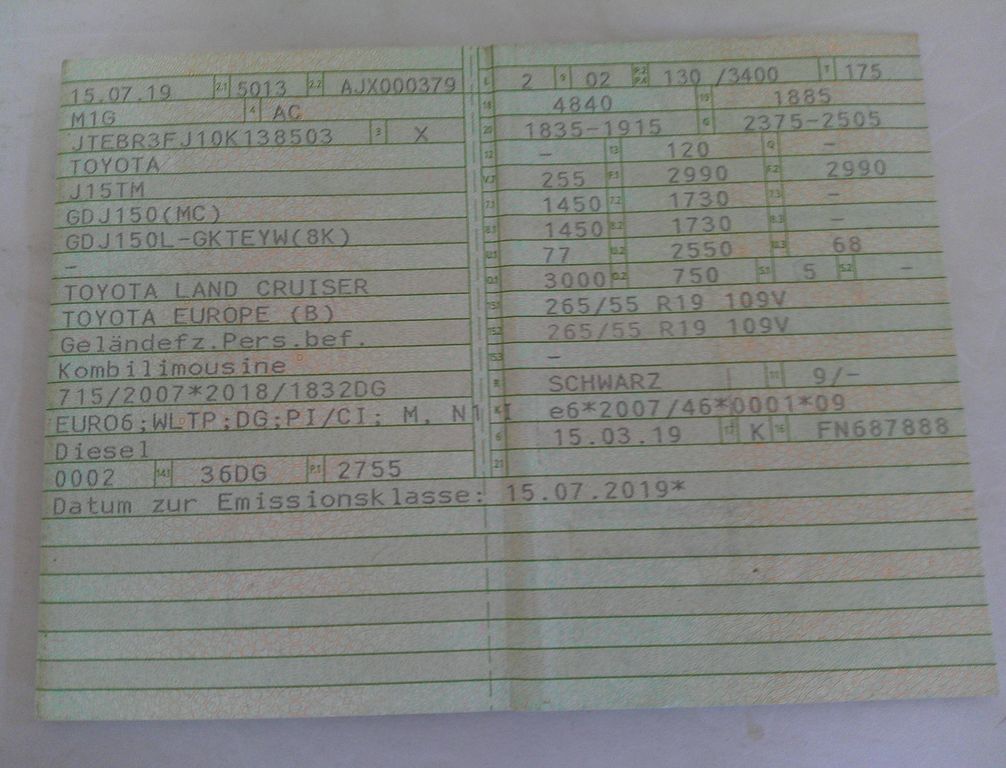 15.07.19 2.1 5013 2.2 AJX000379
M1G 4 AC
JTEBR3FJ10K138503 3 X
TOYOTA
J15TM
GDJ150(MC)
GDJ150L-GKTEYW(8K)
–
TOYOTA LAND CRUISER
TOYOTA EUROPE (B)
Geländefz.Pers.bef.
Kombilimousine
715/2007*2018/1832DG
EURO6;WLTP;DG;PI/CI; M, N1 I
Diesel
0002 14.1 36DG P.1 2755
L 2 9 02 P.2 P.4 130 /3400 T 175
18 4840 19 1885
20 1835-1915 G 2375-2505
12 – 13 120 Q –
V.7 255 F.1 2990 F.2 2990
7.1 1450 7.2 1730 7.3 –
8.1 1450 8.2 1730 8.3 –
U.1 77 U.2 2550 U.3 68
O.1 3000 O.2 750 S.1 5 S.2 –
15.1 265/55 R19 109V
15.2 265/55 R19 109V
15.3 –
R SCHWARZ 11 9/–
K e6*2007/46*0001*09
6 15.03.19 17 K 16 FN687888
21
Datum zur Emissionsklasse: 15.07.2019*